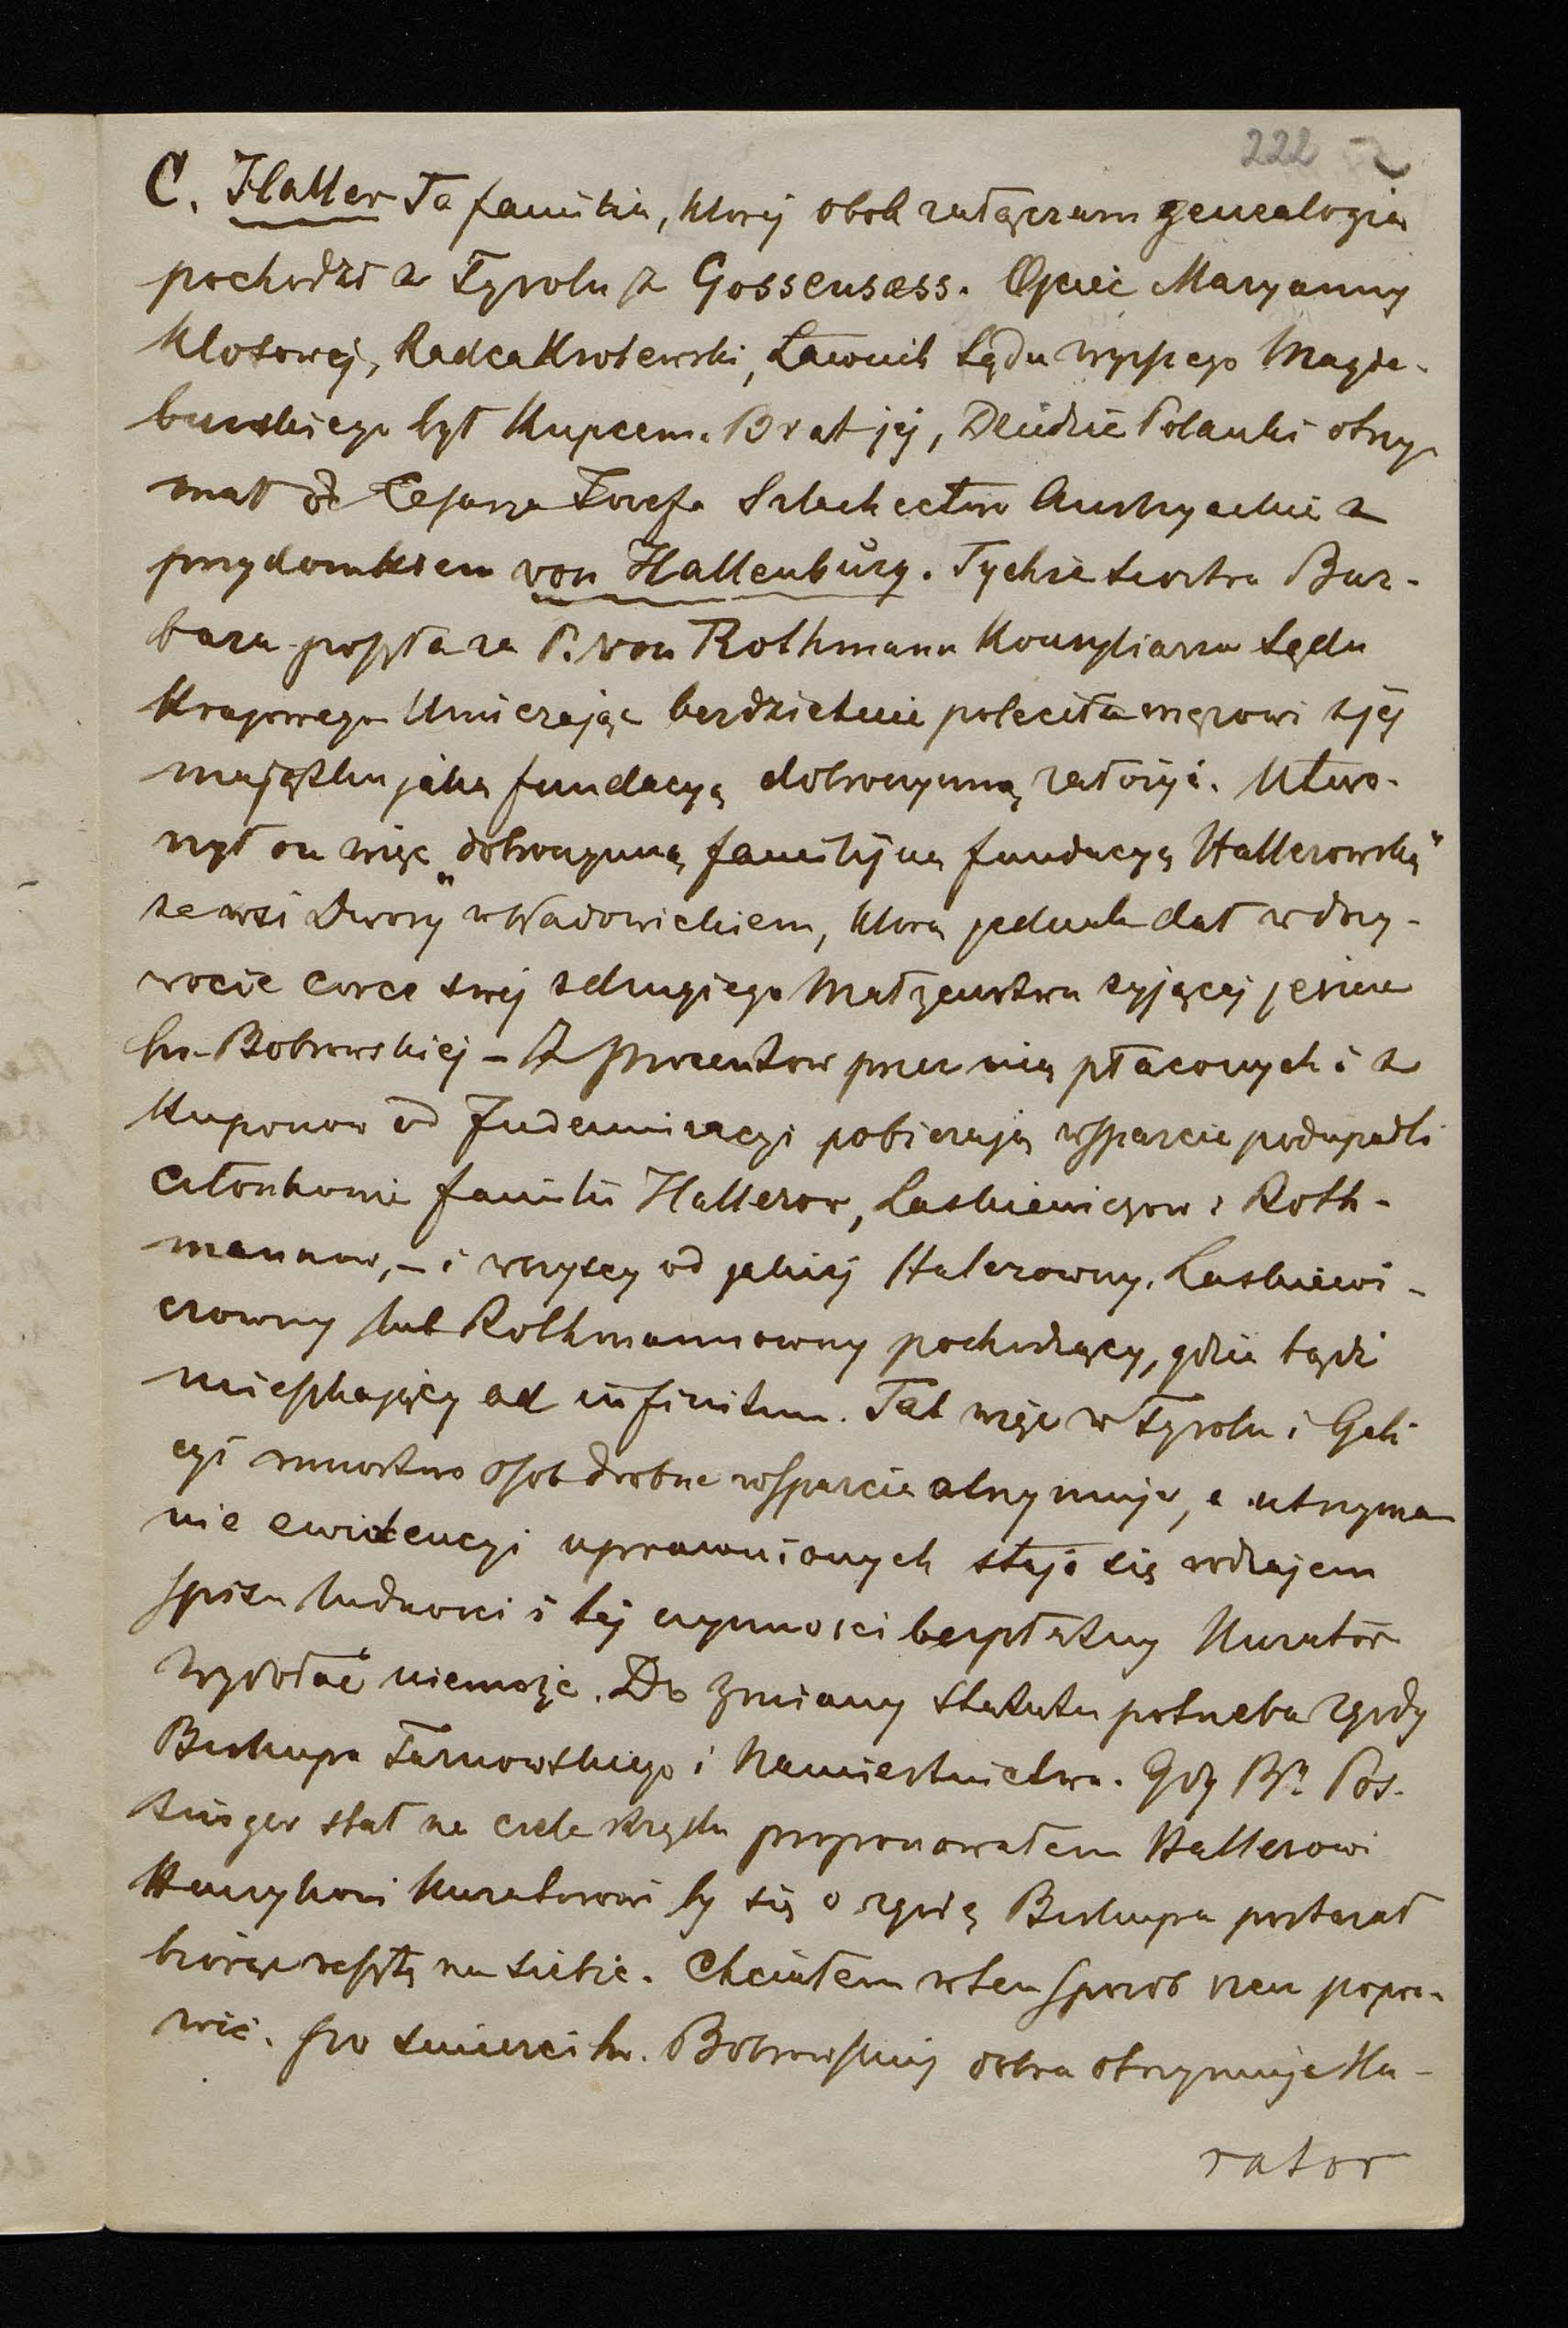 222
C. Haller Ta familia, ktorej obok załączam genealogią
pochodzi z Tyrolu z Gossensass. Ojciec Maryanny
Klosowej, Radca Krolewski, Ławnik Sądu wyższego Magde-
burskiego był Kupcem. Brat jej, Dziedzic Polanki otrzy-
mał od Cesarza Jozefa Szlachectwo Austryackie z
przydomkiem von Hallenburg. Tychże siostra Bar-
bara poszła za P. von Rothmann Konsyliarza Sądu
Krajowego Umierając bezdzietnie poleciła mężowi z jej
majątku jaką fundacyą dobroczynną założyć. Utwo-
rzył on więc "dobroczynną familijną fundacyą Hallerowską"
ze wsi Dwory w Wadowickiem, ktorą jednak dał w doży-
wocie corce swej z drugiego Małżeństwa żyjącej jeszcze
hr. Bobrowskiej – Z procentow przez nią płaconych i z
Kuponow od Indemnizacyi pobierają wsparcie podupadli
członkowie familii Hallerow, Laskiewiczow i Roth-
mannow, – i wszyscy od jakiej Halerowny, Laskiewi-
czowny lub Rothmannowny pochodzący, gdzie bądź
mieszkający ad infinitum. Tak więc w Tyrolu i Gali
cyi mnostwo osob drobne wsparcie otrzymuje, a utrzyma
nie ewidencyi uprawnionych staje się rodzajem
spisu ludnosci i tej czynnosci bezpłatny Kurator
wydołać niemoże. Do zmiany Statutu potrzeba zgody
Biskupa Tarnowskiego i Namiestnictwa. Gdy Br. Pos-
singer stał na czele Rządu proponowałem Hallerowi
Henrykowi Kuratorowi by się o zgodę Biskupa postarał
biorąc resztę na siebie. Chciałem w ten sposob rzecz popra-
wić. Po śmierci hr. Bobrowskiej dobra otrzymuje Ku-
rator